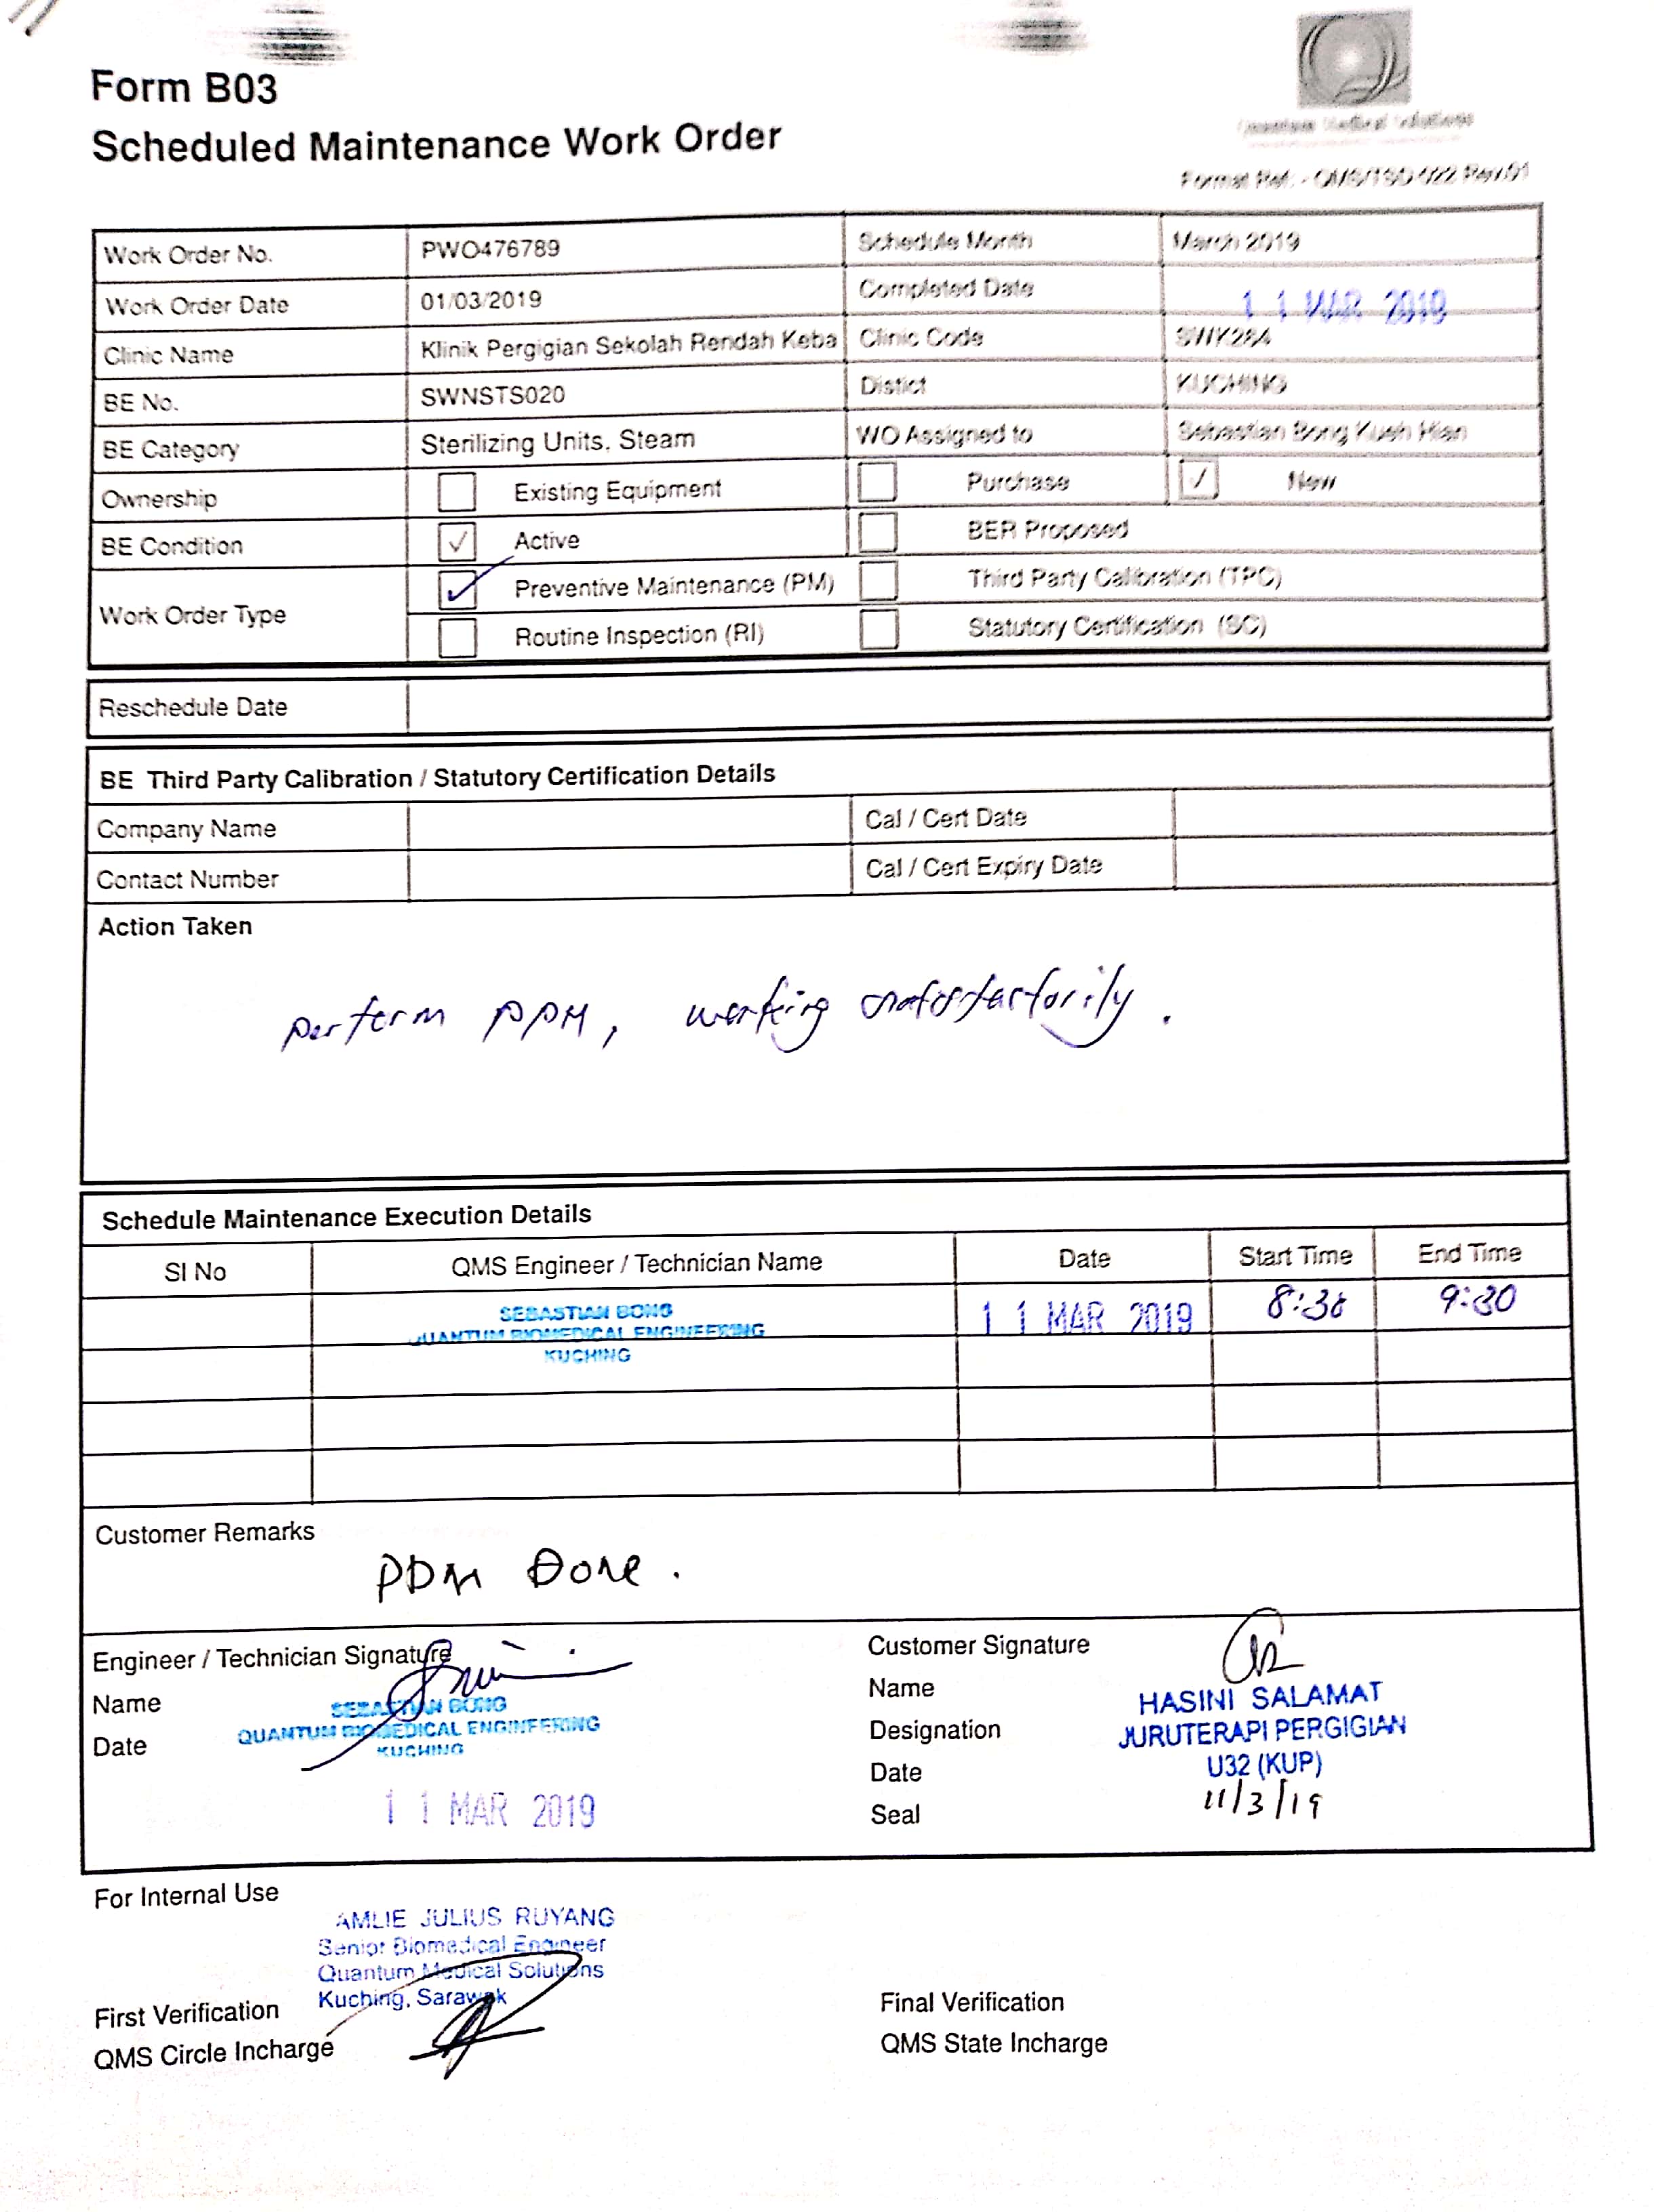 Form B03
Scheduled Maintenance Work Order
Quantum Medical Solutions
Format Ref. - QMS/TSD-022 Rev.01
Work Order No. PWO476789 Schedule Month March 2019
Work Order Date 01/03/2019 Completed Date 11 MAR 2019
Clinic Name Klinik Pergigian Sekolah Rendah Keba Clinic Code SWK284
BE No. SWNSTS020 Distict KUCHING
BE Category Sterilizing Units, Steam WO Assigned to Sebastian Bong Kueh Hian
Ownership Existing Equipment Purchase ✓ New
BE Condition ✓ Active BER Proposed
Work Order Type ✓ Preventive Maintenance (PM) Third Party Calibration (TPC)
Routine Inspection (RI) Statutory Certification (SC)
Reschedule Date
BE Third Party Calibration / Statutory Certification Details
Company Name Cal / Cert Date
Contact Number Cal / Cert Expiry Date
Action Taken
perform PPM, working satisfactorily.
Schedule Maintenance Execution Details
SI No QMS Engineer / Technician Name Date Start Time End Time
SEBASTIAN BONG 11 MAR 2019 8:30 9:30
QUANTUM BIOMEDICAL ENGINEERING
KUCHING
Customer Remarks
PPM Done.
Engineer / Technician Signature
Name SEBASTIAN BONG
QUANTUM BIOMEDICAL ENGINEERING
KUCHING
Date
11 MAR 2019
Customer Signature
Name HASINI SALAMAT
Designation JURUTERAPI PERGIGIAN
U32 (KUP)
Date 11/3/19
Seal
For Internal Use
AMLIE JULIUS RUYANG
Senior Biomedical Engineer
Quantum Medical Solutions
Kuching, Sarawak
First Verification
QMS Circle Incharge
Final Verification
QMS State Incharge